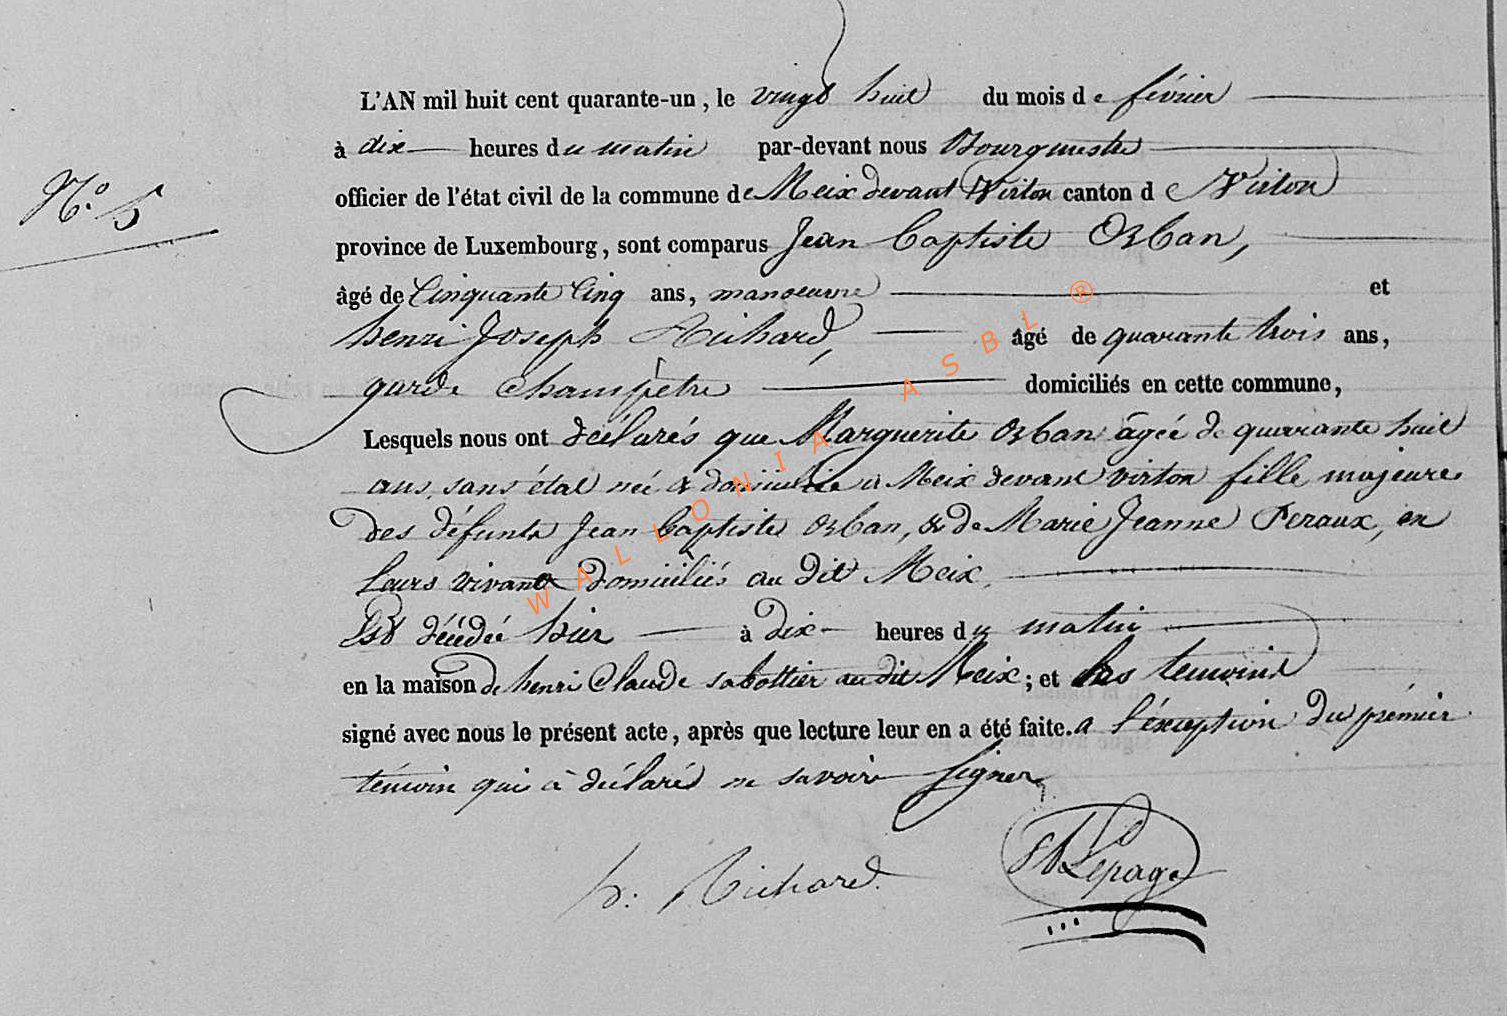 L'AN mil huit cent quarante-un, le vingt huit du mois de février
à dix heures du matin par-devant nous Bourgmestre
N.º 5
officier de l'état civil de la commune de Meix devant Virton canton de Virton
province de Luxembourg, sont comparus Jean Baptiste Orban,
âgé de Cinquante Cinq ans, manoeuvre et
henri Joseph Richard, âgé de quarante trois ans,
garde champêtre domiciliés en cette commune,
Lesquels nous ont déclarés que Marguerite Orban âgée de quarante huit
ans, sans état née & domiciliée à Meix devant virton fille majeure
des défunts Jean Baptiste Orban, & de Marie Jeanne Peraux, en
leurs vivant domiciliés au dit Meix.
Est décédée hier à dix heures du matin
en la maison de henri Claude sabottier au dit Meix; et les temoins
signé avec nous le présent acte, après que lecture leur en a été faite. a l'exception du prémier
témoin qui à déclaré ne savoir signer
h: Richard.
Lepage
WALLONIA ASBL ®